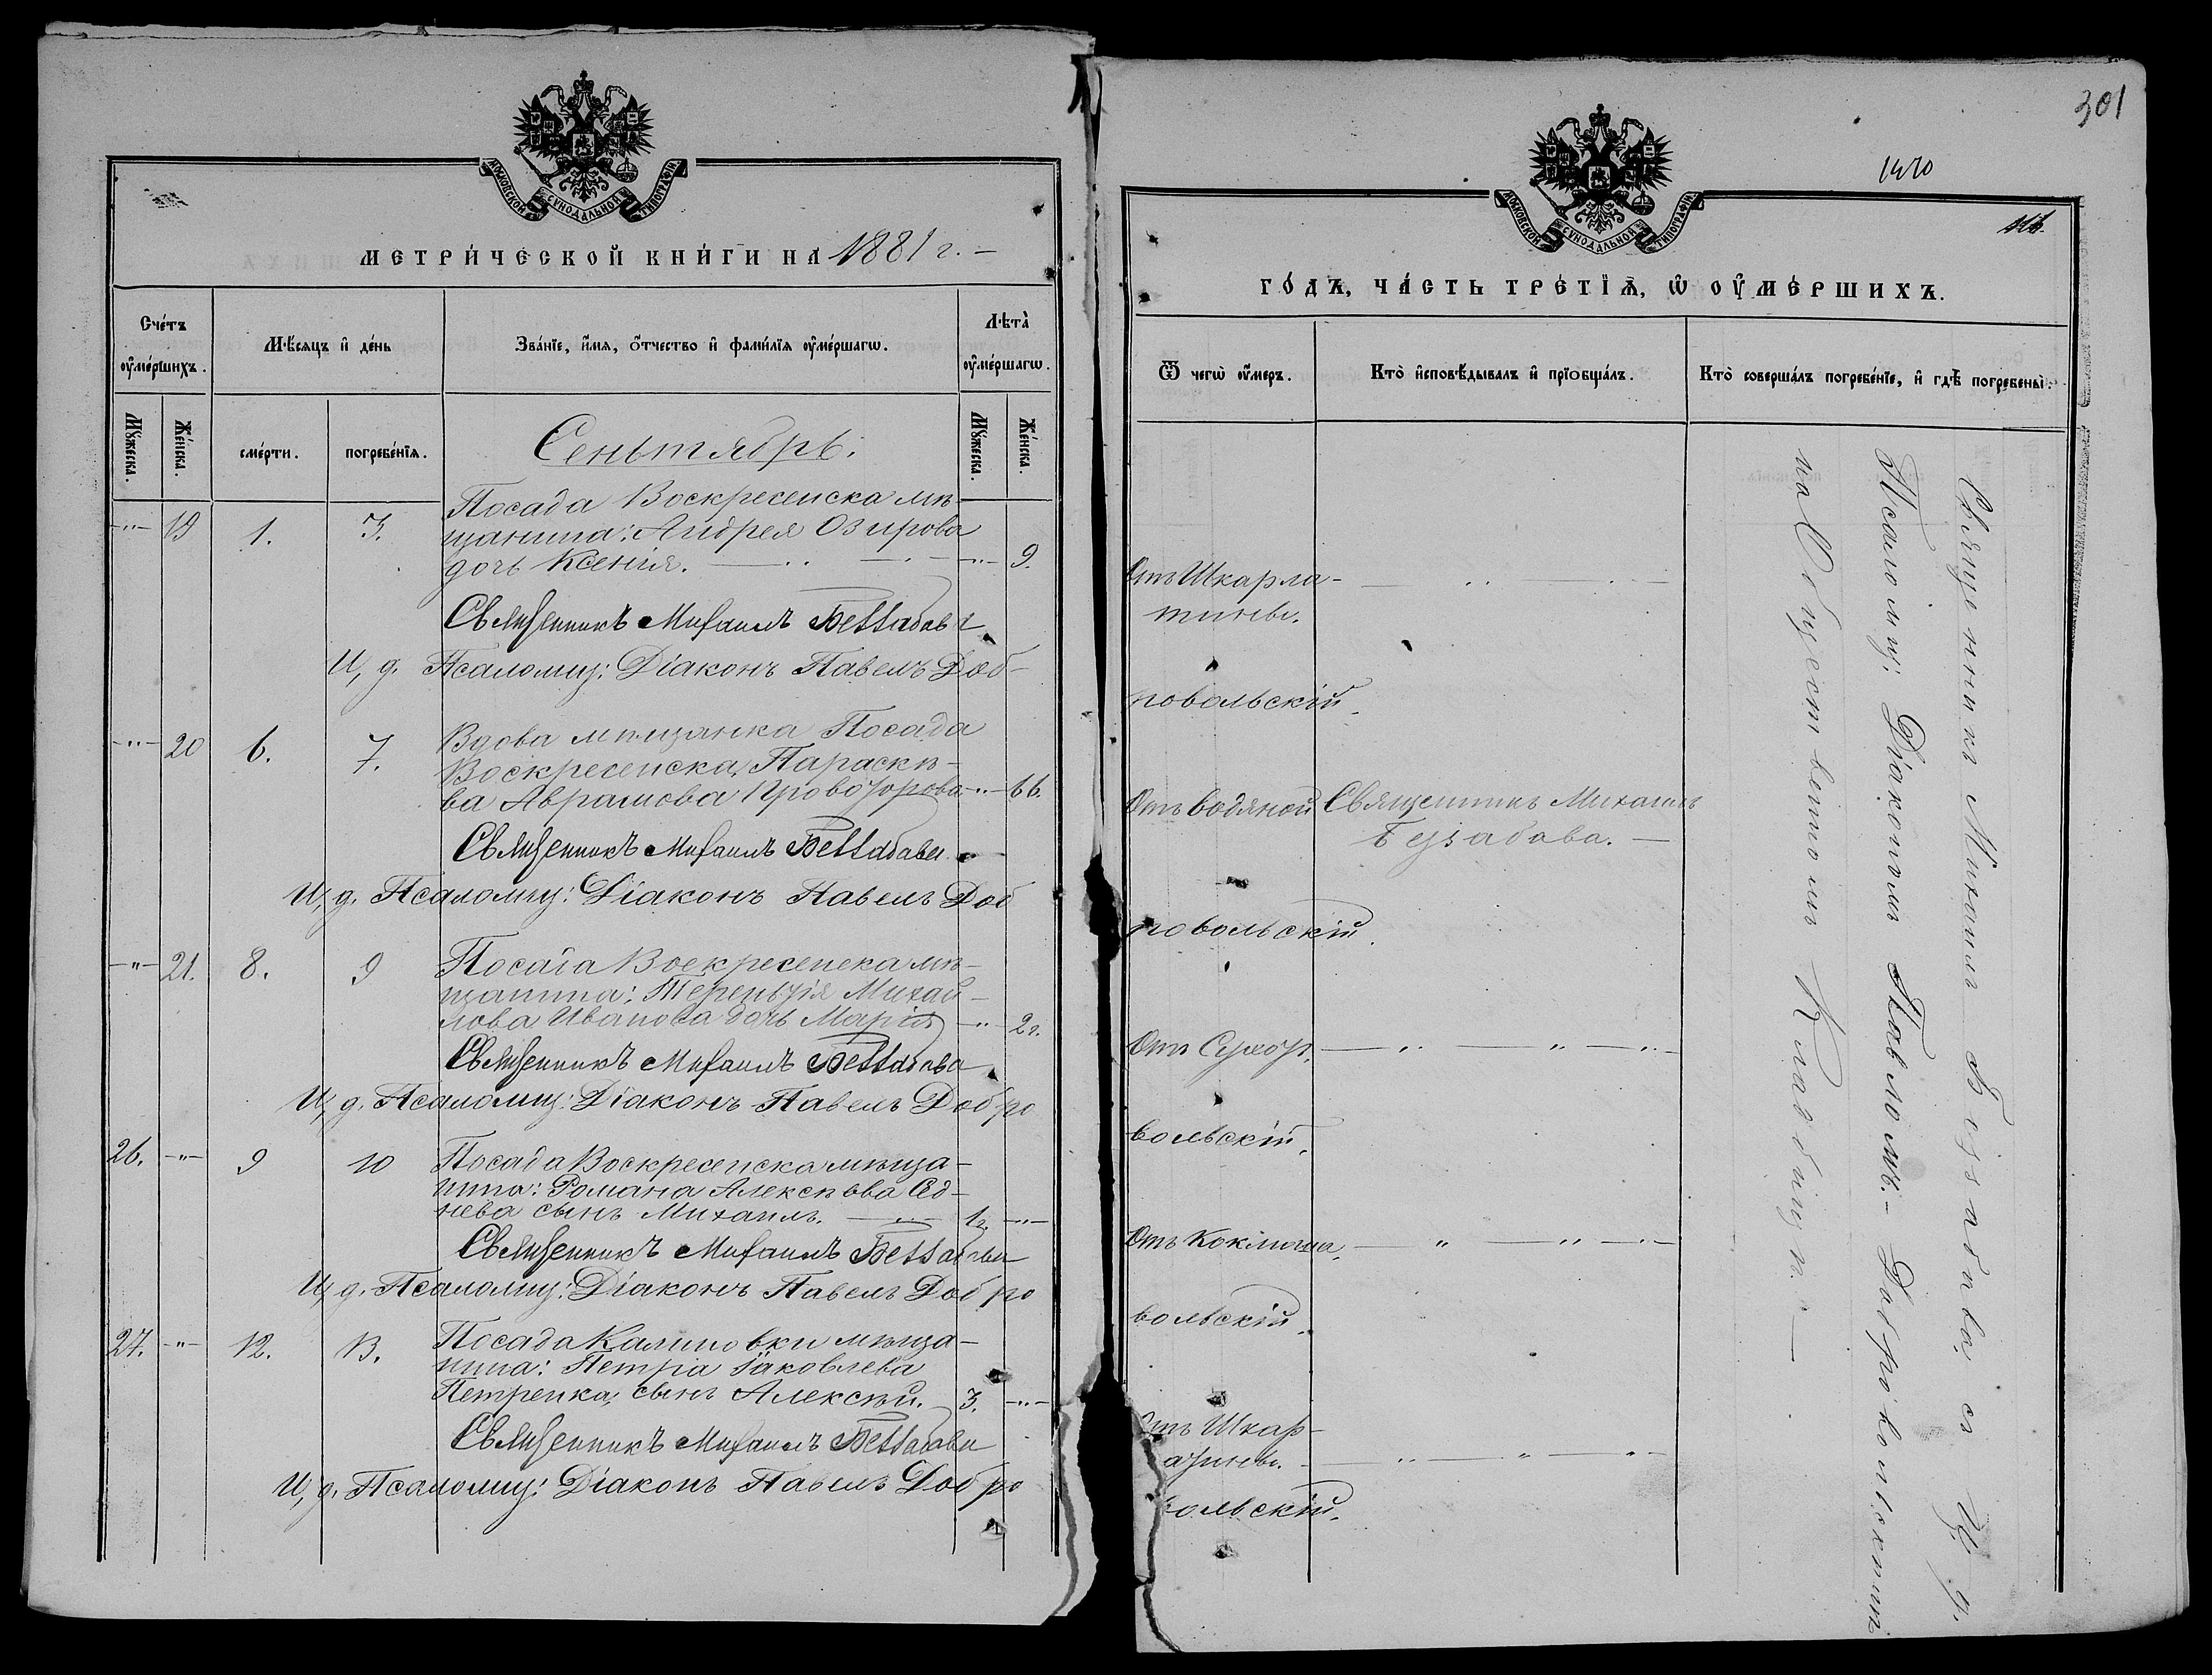 МОСКОВСКОЙ СѴНОДАЛЬНОЙ ТИПОГРАФІИ
МЕТРИ́ЧЕСКОЙ КНИ́ГИ НА 1881 г. –
Сче́тъ оу҆ме́ршихъ.
Мѣ́сяцъ и҆ де́нь
Зва́нїе, и҆́мя, ѻ҆́тчество и҆ фами́лїя оу҆ме́ршагѡ.
Лѣта̀ оу҆ме́ршагѡ.
Мꙋ́жеска.
Же́нска.
сме́рти.
погребе́нїя.
Мꙋ́жеска.
Же́нска.
Сеньтябрь.
–"– 19 1. 3. Посада Воскресенска мѣ-
щанина: Андрея Озирова
дочь Ксенія. –"– 9.
Священникъ Михаилъ Беззабава
И, д. Псаломщ: Діаконъ Павелъ Доб-
–"– 20 6. 7. Вдова мѣщанка Посада
Воскресенска, Параскѣ-
ва Аврамова –"– 66.
Священникъ Михаилъ Беззабава
И, д. Псаломщ: Діаконъ Павелъ Доб
–"– 21. 8. 9 Посада Воскресенска мѣ-
щанина: Терентія Михай-
лова Иванова дочь Марія –"– 2г.
Священникъ Михаилъ Беззабава
И, д. Псаломщ: Діаконъ Павелъ Добро
26. –"– 9 10 Посада Воскресенска мѣща-
нина: Романа Алексѣева Сѣд-
нева сынъ Михаилъ. 1г. –"–
Священникъ Михаилъ Беззабава
И, д. Псаломщ: Діаконъ Павелъ Добро
27. –"– 12. 13. Посада Калиновки мѣща-
нина: Петра Іаковлева
Петренка, сынъ Алексѣй. 3. –"–
Священникъ Михаилъ Беззабава
И, д. Псаломщ: Діаконъ Павелъ Добро
301
1470
МОСКОВСКОЙ СѴНОДАЛЬНОЙ ТИПОГРАФІИ
ГО́ДЪ, ЧА́СТЬ ТРЕ́ТЇѦ, Ѡ҆ ОУ҆МЕ́РШИХЪ.
Ѿ чегѡ̀ оу҆́меръ.
Кто̀ и҆сповѣ́дывалъ и҆ прїобща́лъ.
Кто̀ соверша́лъ погребе́нїе, и҆ гдѣ̀ погребены̀.
Отъ Шкарла-
тины.
ровольскій.
Отъ водяной Священникъ Михаилъ
Беззабава. –
ровольскій.
Отъ Сухот.
вольскій.
Отъ Коклюша.
вольскій.
Отъ Шкар-
атины.
вольскій.
Священникъ Михаилъ Беззабава, съ И. д.
Псаломщ: Діакономъ Павломъ. – Добровольскимъ
на Общественномъ Кладбищѣ. –